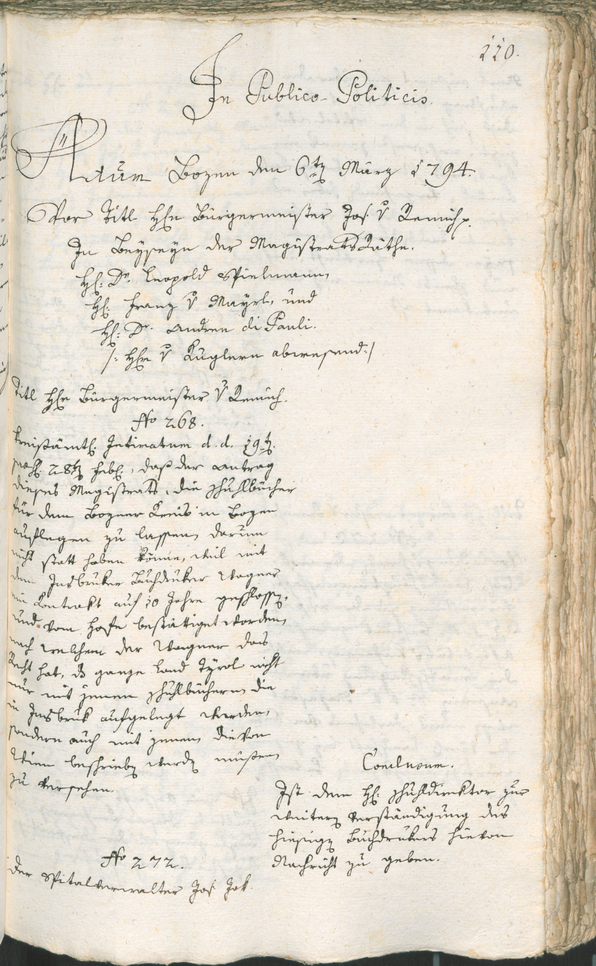 110.
In Publico Politicis.
Actum Bozen den 6ten März 1794.
Vor Titl Hhn Bürgermeister Jos: v Remich.
In Beyseyn der Magistrats Räthe.
Hl: Dr. Leopold Spielmann,
Hl: Franz v Mayrl, und
Hl: Dr. Andreä di Pauli.
/: Hhr v Kuglern abwesend :/
Titl Hhr Bürgermeister v Remich.
No 268.
Kreisämtl: Intimatum d. d. 19t
28t Febl:, daß der Antrag
dieses Magistrats, die Schuhlbücher
für den Bozner Kreis in Bozen
auflegen zu lassen, darum
nicht statt haben könne, weil mit
dem Insbruker Buchdruker Wagner
ein Contrakt auf 10 Jahre geschlossen,
und vom Hofe bestättiget worden,
nach welchem der Wagner das
Recht hat, das ganze Land Tyrol nicht
nur mit jenen Schuhlbüchern die
in Insbruk aufgelegt werden,
sondern auch mit jenen die von
Wien beschrieben werden müßen
zu versehen.
Conclusum.
Ist dem Hl: Schuhldirektor zur
weitern Verständigung des
hiesigen Buchdrukers hievon
Nachricht zu geben.
No 272.
Der Spitalverwalter Jos: Jak: